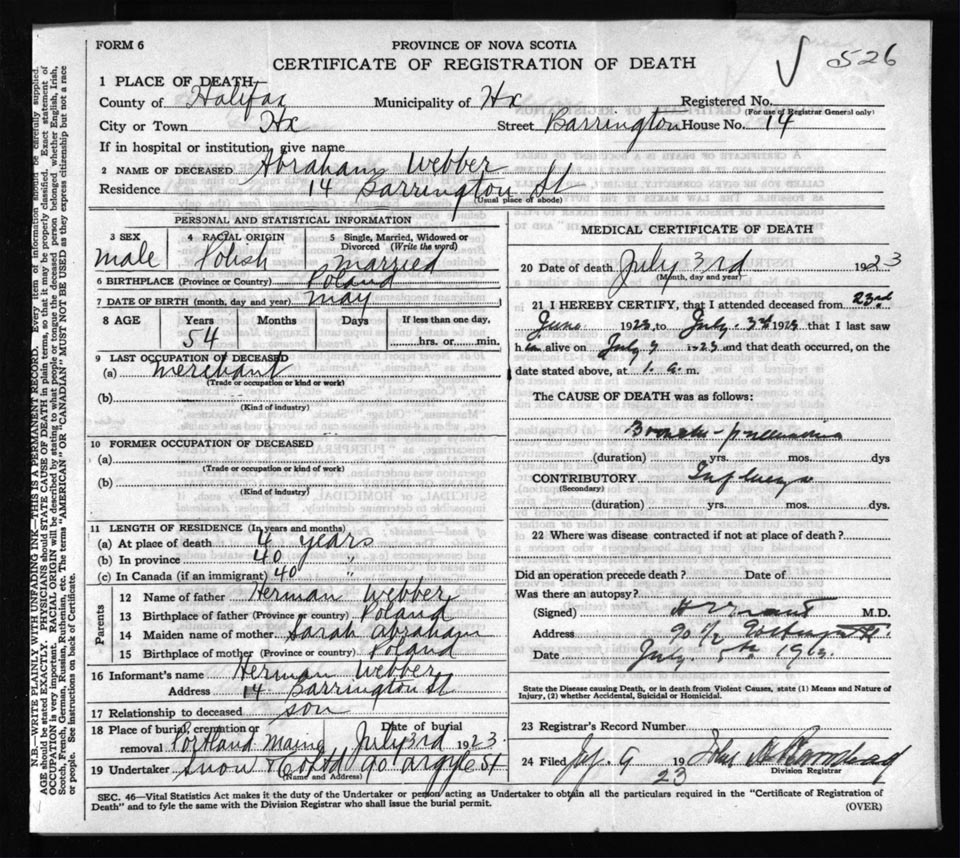 FORM 6
PROVINCE OF NOVA SCOTIA
CERTIFICATE OF REGISTRATION OF DEATH
526
1 PLACE OF DEATH
County of Halifax Municipality of Hx Registered No.
(For use of Registrar General only)
City or Town Hx Street Barrington House No. 14
If in hospital or institution, give name
2 NAME OF DECEASED Abraham Webber
Residence 14 Barrington St
(Usual place of abode)
PERSONAL AND STATISTICAL INFORMATION
3 SEX 4 RACIAL ORIGIN 5 Single, Married, Widowed or Divorced (Write the word)
male Polish married
6 BIRTHPLACE (Province or Country) Poland
7 DATE OF BIRTH (month, day and year) may
8 AGE Years Months Days If less than one day,
54 hrs. or min.
9 LAST OCCUPATION OF DECEASED
(a) merchant
(Trade or occupation or kind or work)
(b)
(Kind of industry)
10 FORMER OCCUPATION OF DECEASED
(a)
(Trade or occupation or kind of work)
(b)
(Kind of industry)
11 LENGTH OF RESIDENCE (In years and months)
(a) At place of death 4 years
(b) In province 40 "
(c) In Canada (if an immigrant) 40 "
Parents
12 Name of father Herman Webber
13 Birthplace of father (Province or country) Poland
14 Maiden name of mother Sarah Abraham
15 Birthplace of mother (Province or country) Poland
16 Informant's name Herman Webber
Address 14 Barrington St
17 Relationship to deceased son
18 Place of burial, cremation or removal Portland Maine Date of burial July 3rd 1923
19 Undertaker Snow & Co Ltd 90 argyle St
(Name and Address)
MEDICAL CERTIFICATE OF DEATH
20 Date of death July 3rd 1923
(Month, day and year)
21 I HEREBY CERTIFY, that I attended deceased from 23rd
June 1923, to July 3rd 1923 that I last saw
him alive on July 3 1923 and that death occurred, on the
date stated above, at 1 a. m.
The CAUSE OF DEATH was as follows:
Broncho-pneumonia
(duration) yrs. mos. dys
CONTRIBUTORY Influenza
(Secondary)
(duration) yrs. mos. dys.
22 Where was disease contracted if not at place of death?
Did an operation precede death? Date of
Was there an autopsy?
(Signed) M.D.
Address 90 1/2 St.
Date July 5th
State the Disease causing Death, or in death from Violent Causes, state (1) Means and Nature of
Injury, (2) whether Accidental, Suicidal or Homicidal.
23 Registrar's Record Number
24 Filed 9 1923 John
Division Registrar
SEC. 46—Vital Statistics Act makes it the duty of the Undertaker or person acting as Undertaker to obtain all the particulars required in the "Certificate of Registration of
Death" and to fyle the same with the Division Registrar who shall issue the burial permit.
(OVER)
N.B.—WRITE PLAINLY WITH UNFADING INK—THIS IS A PERMANENT RECORD. Every item of information should be carefully supplied.
AGE should be stated EXACTLY. PHYSICIANS should STATE CAUSE OF DEATH in plain terms, so that it may be properly classified. Exact statement of
OCCUPATION is very important. RACIAL ORIGIN will be described by stating to what people or tongue the deceased person belonged whether English, Irish,
Scotch, French, German, Russian, Ruthenian, etc. The terms "AMERICAN" OR "CANADIAN" MUST NOT BE USED as they express citizenship but not a race
or people. See instructions on back of Certificate.